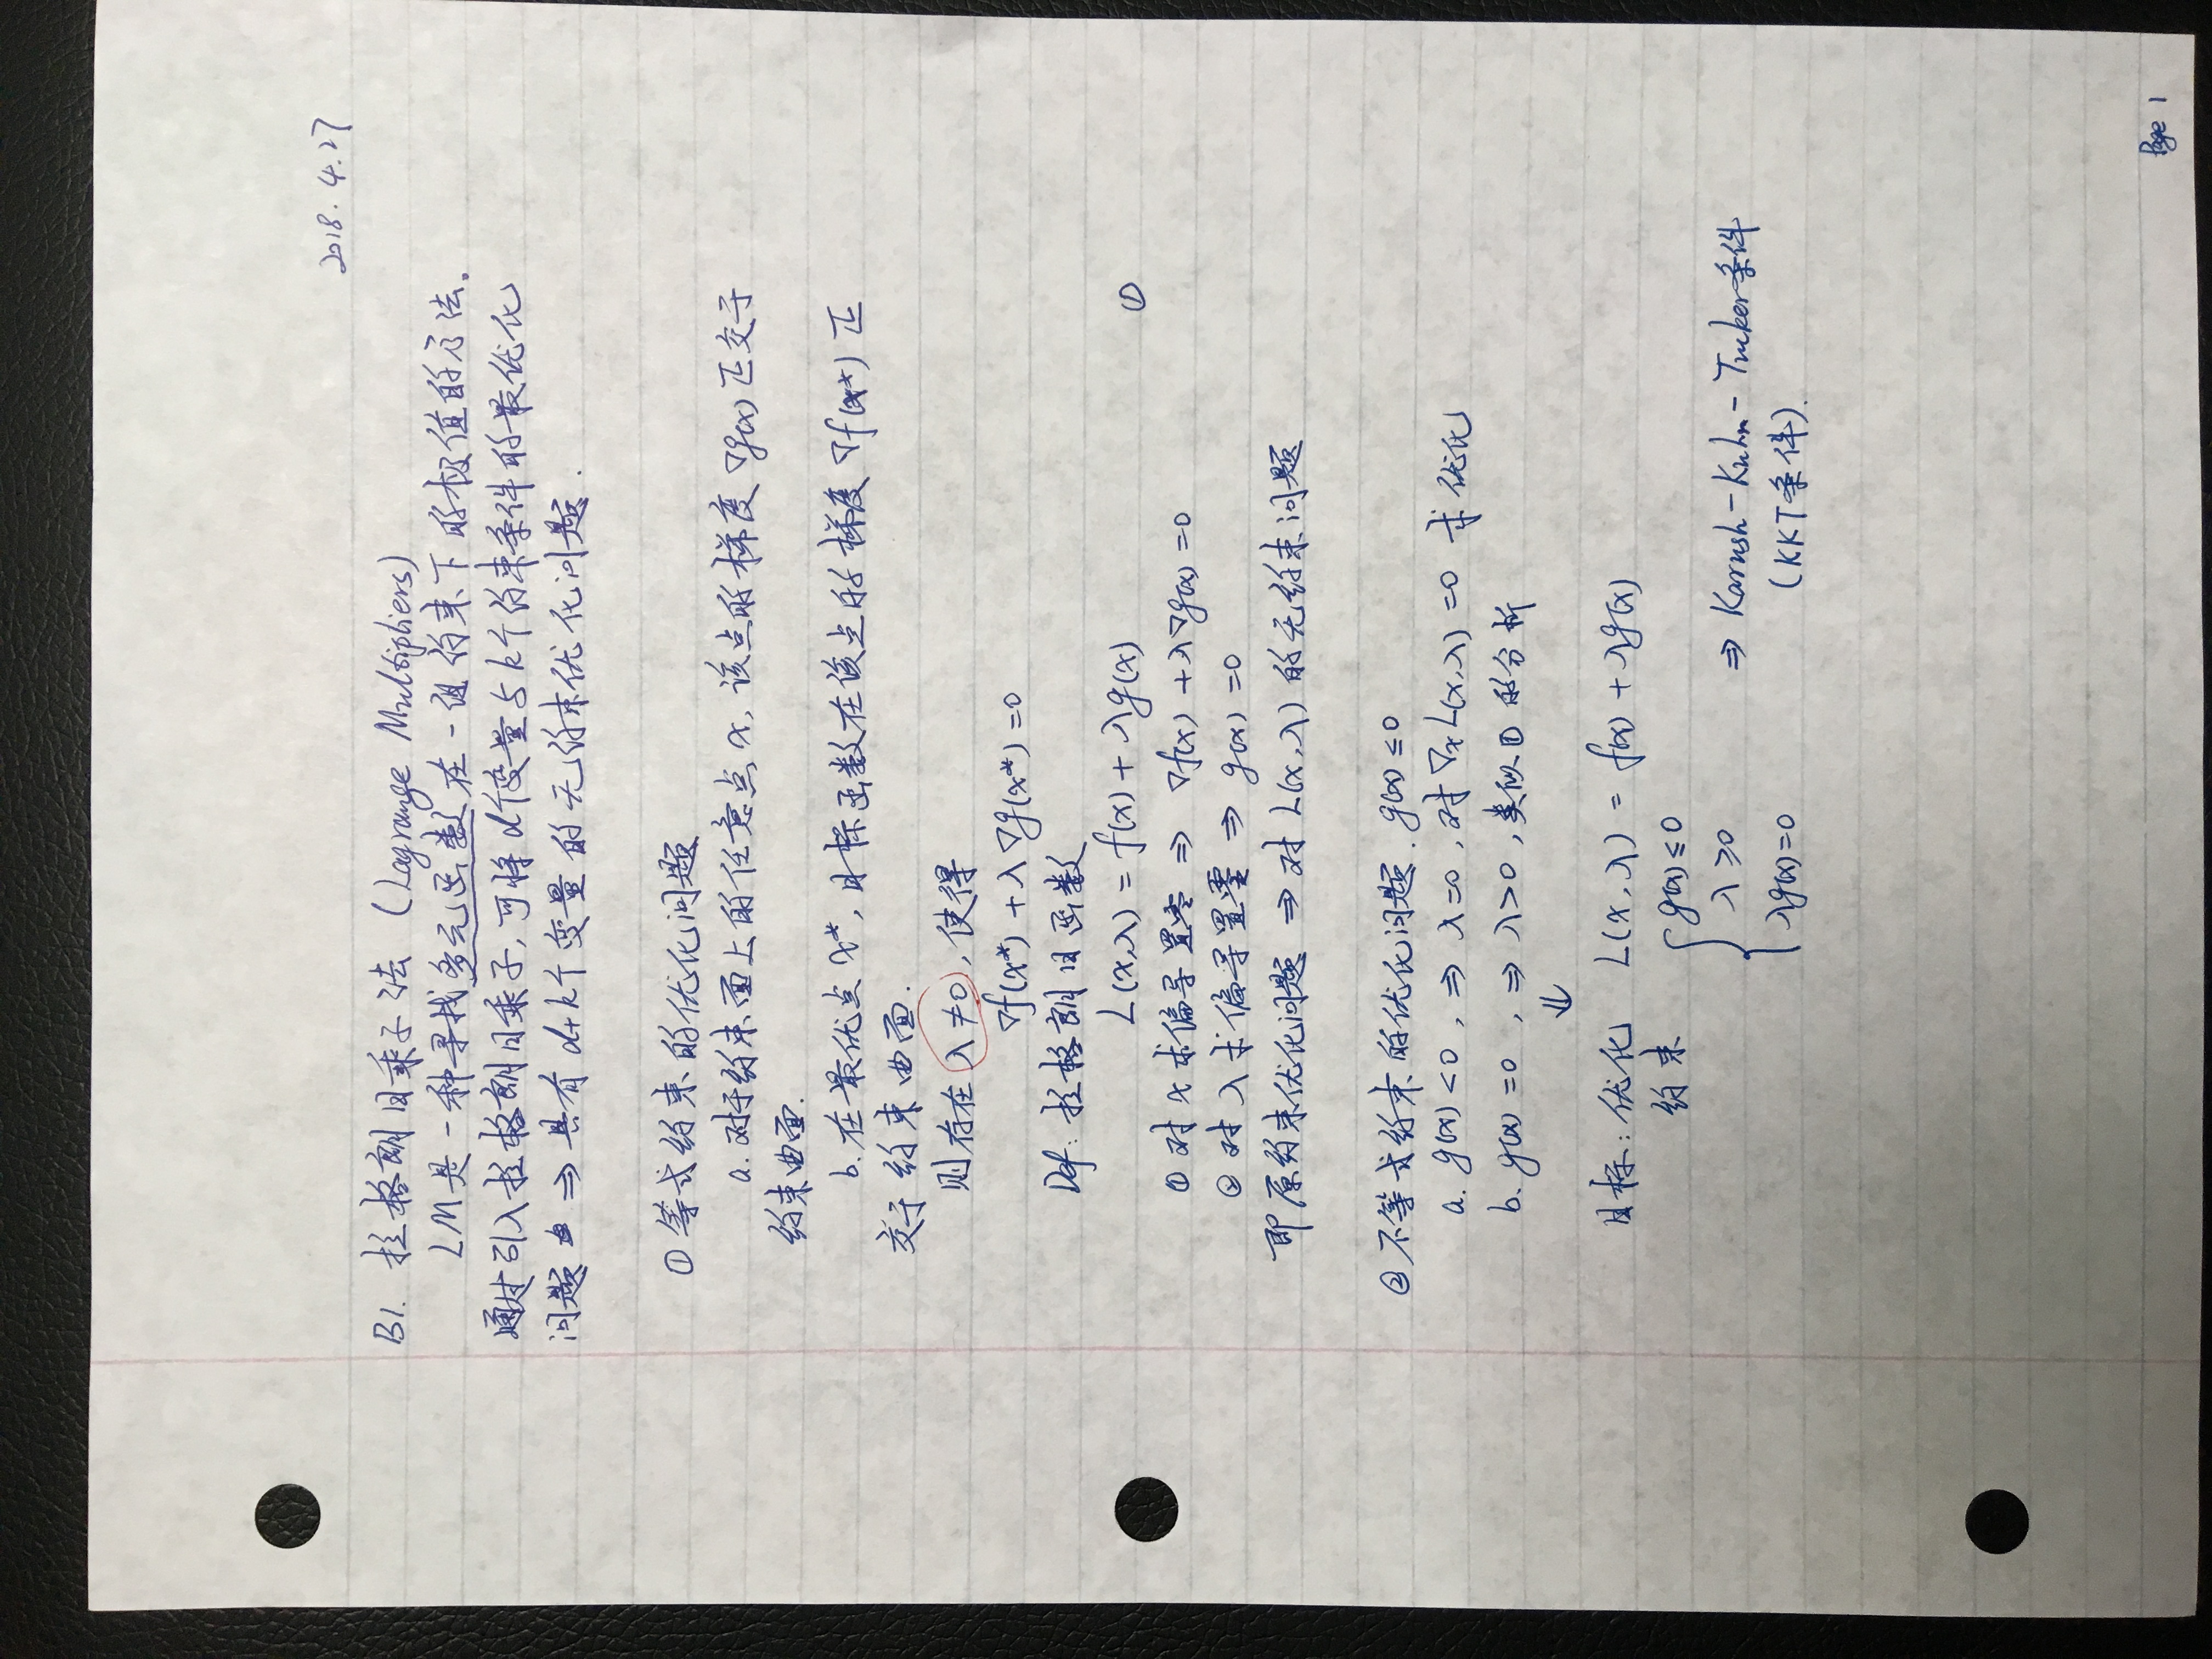 2018.4.27
B1. 拉格朗日乘子法 (Lagrange Multipliers)
LM是一种寻找多元函数在一组约束下的极值的方法.
通过引入拉格朗日乘子,可将d个变量与k个约束条件的最优化
问题 ⇒ 具有d+k个变量的无约束优化问题.
① 等式约束的优化问题
a. 对于约束面上的任意点x, 该点的梯度∇g(x)正交于
约束曲面.
b. 在最优点x*, 目标函数在该点的梯度∇f(x*)正
交于约束曲面.
则存在λ≠0, 使得
∇f(x*) + λ∇g(x*) = 0
Def: 拉格朗日函数
L(x,λ) = f(x) + λg(x) ①
① 对x求偏导置零 ⇒ ∇f(x) + λ∇g(x) = 0
② 对λ求偏导置零 ⇒ g(x) = 0
即原约束优化问题 ⇒ 对L(x,λ)的无约束问题
② 不等式约束的优化问题. g(x) ≤ 0
a. g(x) < 0, ⇒ λ=0, 对∇xL(x,λ) = 0 求优化
b. g(x) = 0, ⇒ λ>0, 类似①的分析
⇓
目标: 优化 L(x,λ) = f(x) + λg(x)
约束 { g(x) ≤ 0
λ ≥ 0 ⇒ Karush-Kuhn-Tucker条件
λg(x) = 0 (KKT条件).
Page 1